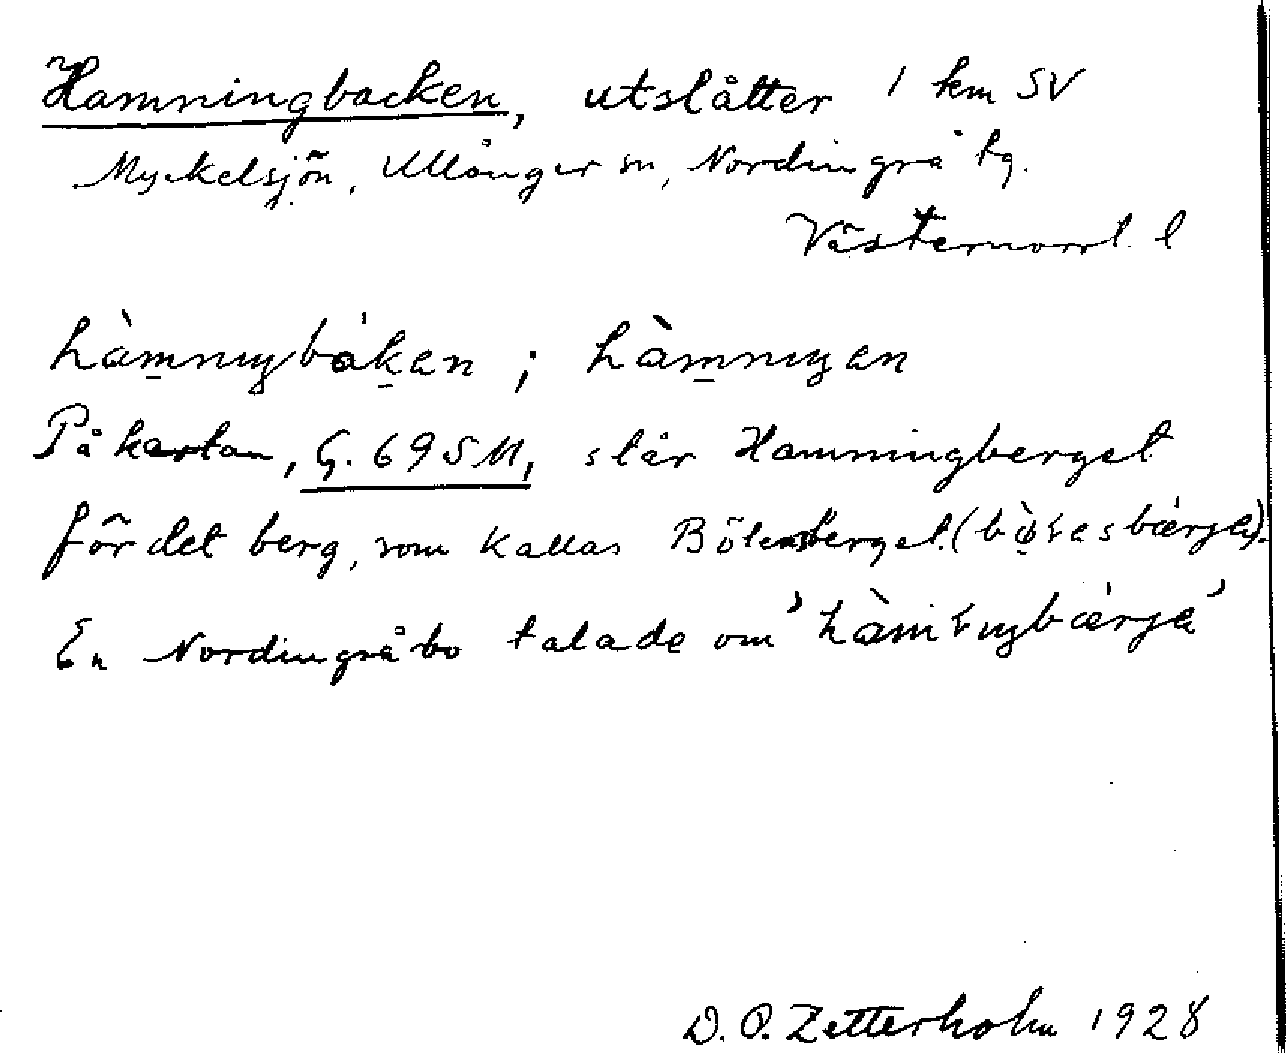 Hamningbacken, utslåtter 1 km SV
Myckelsjön, Ullånger sn, Nordingrå tg.
Västernorrl. l
hàmnıŋbákan ; hàmnıŋan
På kartan, G. 69 SM, står Hamningberget
för det berg, som kallas Bölesberget (bø̀ɽasbærja).
En Nordingråbo talade om 'hàmɽıŋbærja'
D. O. Zetterholm 1928